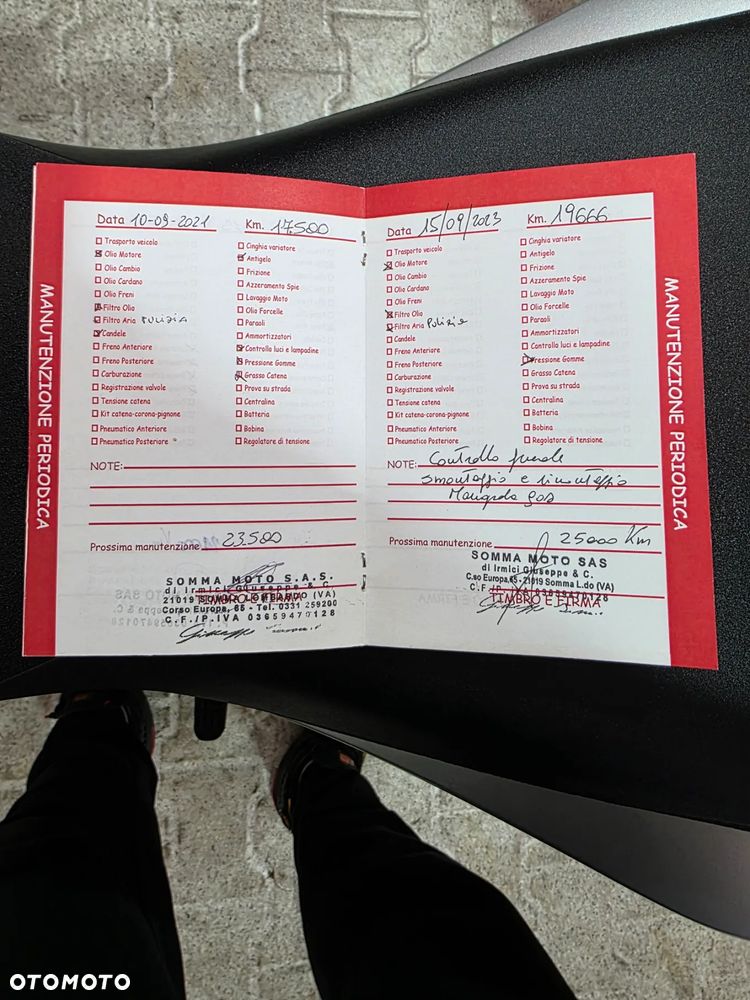 MANUTENZIONE PERIODICA
Data 10-09-2021 Km. 17500
Trasporto veicolo
Olio Motore
Olio Cambio
Olio Cardano
Olio Freni
Filtro Olio
Filtro Aria PULIZIA
Candele
Freno Anteriore
Freno Posteriore
Carburazione
Registrazione valvole
Tensione catena
Kit catena-corona-pignone
Pneumatico Anteriore
Pneumatico Posteriore
Cinghia variatore
Antigelo
Frizione
Azzeramento Spie
Lavaggio Moto
Olio Forcelle
Paraoli
Ammortizzatori
Controllo luci e lampadine
Pressione Gomme
Grasso Catena
Prova su strada
Centralina
Batteria
Bobina
Regolatore di tensione
NOTE:
Prossima manutenzione 23.500
SOMMA MOTO S.A.S.
di Irmici Giuseppe & C.
21019 SOMMA LOMBARDO (VA)
TIMBRO E FIRMA
Corso Europa, 65 - Tel. 0331 259200
C.F./P.IVA 03659470128
Data 15/09/2023 Km. 19666
Trasporto veicolo
Olio Motore
Olio Cambio
Olio Cardano
Olio Freni
Filtro Olio
Filtro Aria Pulizia
Candele
Freno Anteriore
Freno Posteriore
Carburazione
Registrazione valvole
Tensione catena
Kit catena-corona-pignone
Pneumatico Anteriore
Pneumatico Posteriore
Cinghia variatore
Antigelo
Frizione
Azzeramento Spie
Lavaggio Moto
Olio Forcelle
Paraoli
Ammortizzatori
Controllo luci e lampadine
Pressione Gomme
Grasso Catena
Prova su strada
Centralina
Batteria
Bobina
Regolatore di tensione
NOTE: Controllo
smontaggio e rimontaggio
Manopola gas
Prossima manutenzione 25000 Km
SOMMA MOTO SAS
di Irmici Giuseppe & C.
C.so Europa,65 - 21019 Somma L.do (VA)
03659470128
TIMBRO E FIRMA
MANUTENZIONE PERIODICA
OTOMOTO